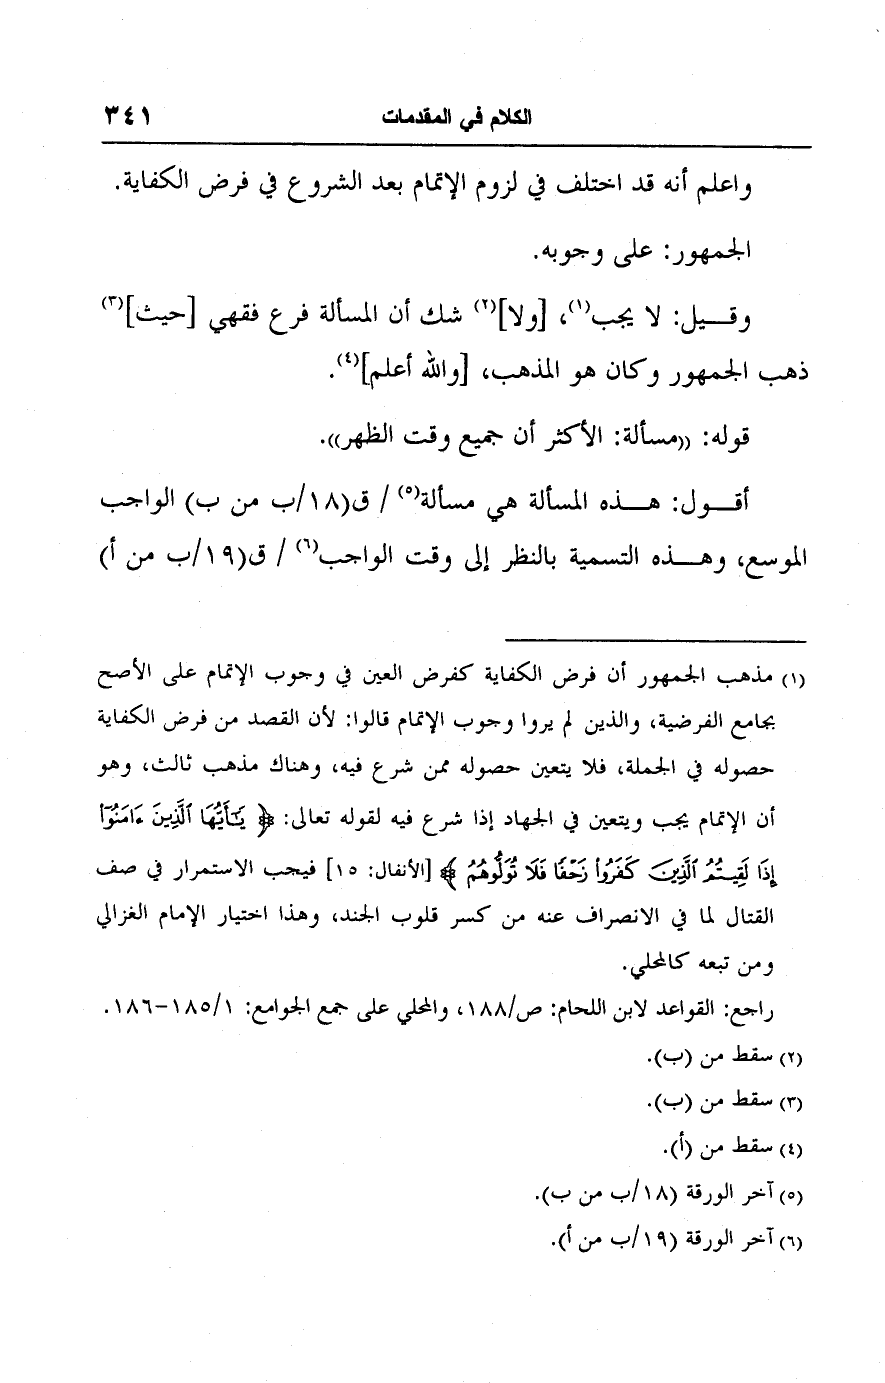 الكلام في المقدمات ٣٤١
واعلم أنه قد اختلف في لزوم الإتمام بعد الشروع في فرض الكفاية.
الجمهور: على وجوبه.
وقـــيل: لا يجب(١)، [ولا](٢) شك أن المسألة فرع فقهي [حيث](٣)
ذهب الجمهور وكان هو المذهب، [والله أعلم](٤).
قوله: ((مسألة: الأكثر أن جميع وقت الظهر)).
أقـــول: هـــذه المسألة هي مسألة(٥) / ق(١٨/ب من ب) الواجب
الموسع، وهـــذه التسمية بالنظر إلى وقت الواجب(٦) / ق(١٩/ب من أ)
(١) مذهب الجمهور أن فرض الكفاية كفرض العين في وجوب الإتمام على الأصح
بجامع الفرضية، والذين لم يروا وجوب الإتمام قالوا: لأن القصد من فرض الكفاية
حصوله في الجملة، فلا يتعين حصوله ممن شرع فيه، وهناك مذهب ثالث، وهو
أن الإتمام يجب ويتعين في الجهاد إذا شرع فيه لقوله تعالى: ﴿ يَـٰٓأَيُّهَا ٱلَّذِينَ ءَامَنُوٓا۟
إِذَا لَقِيتُمُ ٱلَّذِينَ كَفَرُوا۟ زَحْفًا فَلَا تُوَلُّوهُمُ ﴾ [الأنفال: ١٥] فيجب الاستمرار في صف
القتال لما في الانصراف عنه من كسر قلوب الجند، وهذا اختيار الإمام الغزالي
ومن تبعه كالمحلي.
راجع: القواعد لابن اللحام: ص/١٨٨، والمحلي على جمع الجوامع: ١/١٨٥-١٨٦.
(٢) سقط من (ب).
(٣) سقط من (ب).
(٤) سقط من (أ).
(٥) آخر الورقة (١٨/ب من ب).
(٦) آخر الورقة (١٩/ب من أ).